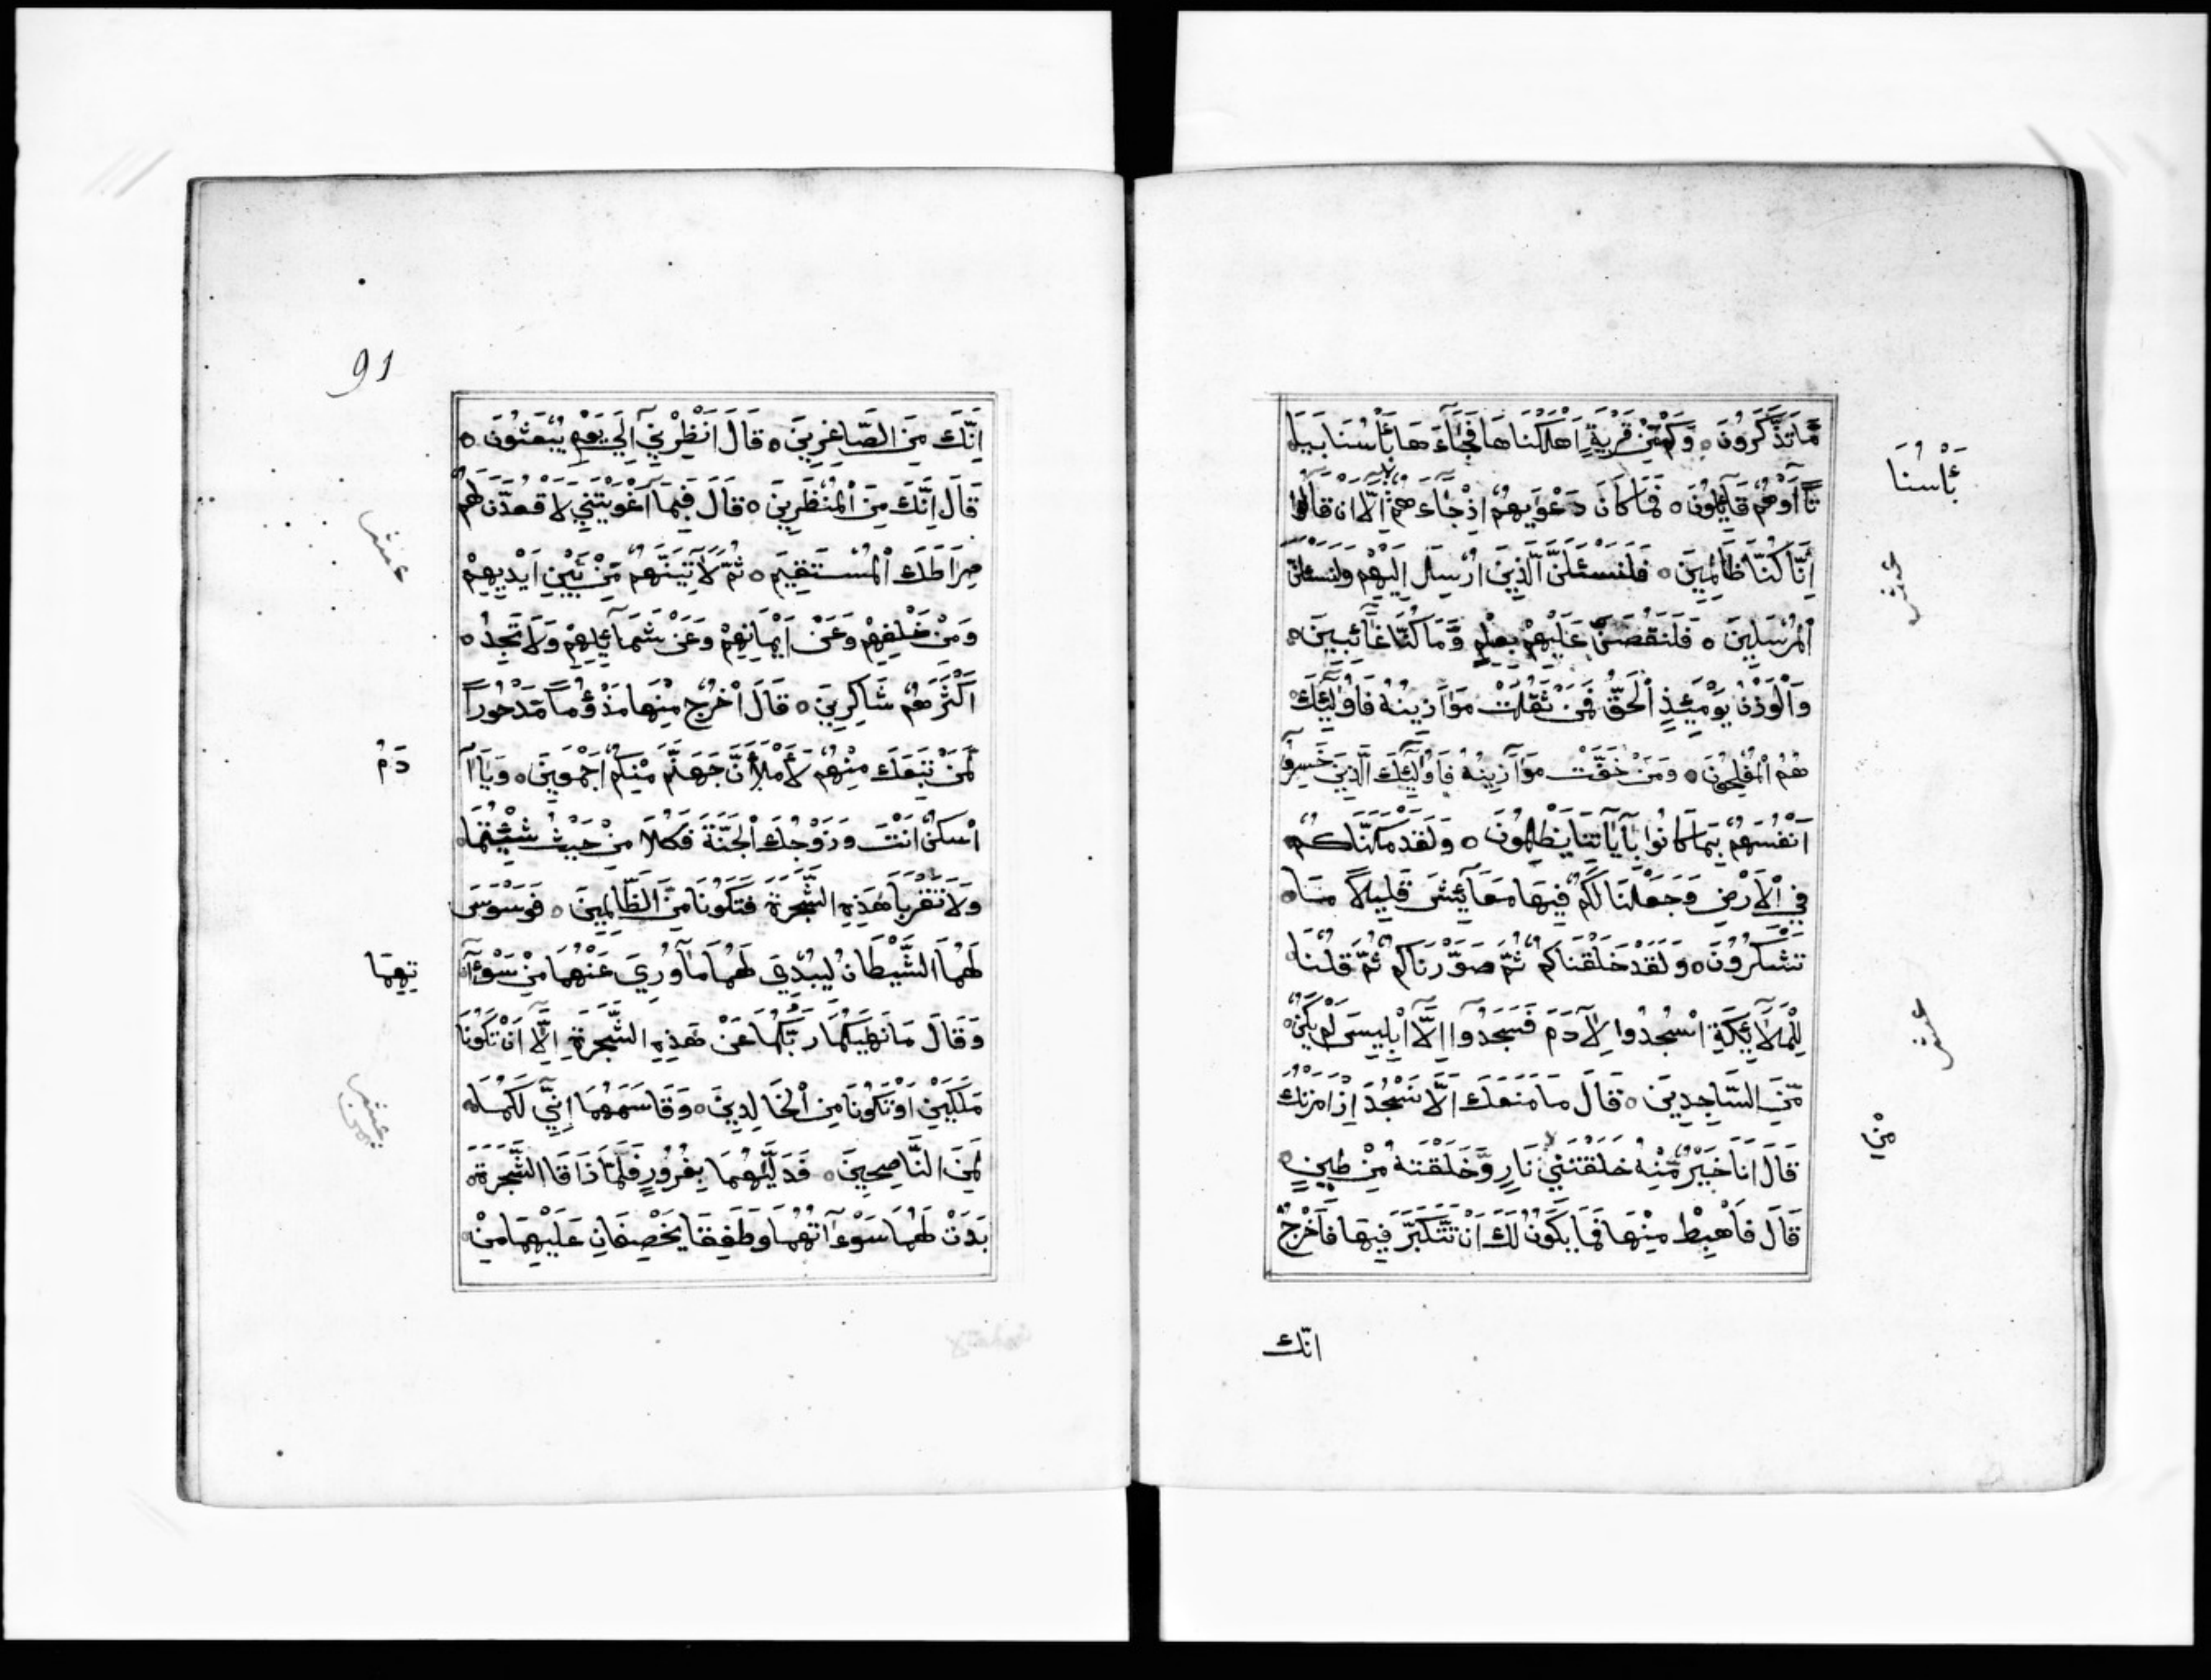 مَّا تَذَكَّرُونَ ۝ وَكَمْ مِّنْ قَرْيَةٍ اَهْلَكْنَاهَا فَجَآءَهَا بَأْسُنَا بَيَا
بَأْسُنَا
تًا اَوْهُمْ قَآئِلُونَ ۝ فَمَا كَانَ دَعْوٰيهُمْ اِذْ جَآءَ هُمْ اِلَّا اَنْ قَالُوا
اِنَّا كُنَّا ظَالِمِينَ ۝ فَلَنَسْئَلَنَّ الَّذِينَ اُرْسِلَ اِلَيْهِمْ وَلَنَسْئَلَنَّ
عشر
الْمُرْسَلِينَ ۝ فَلَنَقُصَّنَّ عَلَيْهِمْ بِعِلْمٍ وَّمَا كُنَّا غَآئِبِينَ ۝
وَالْوَزْنُ يَوْمَئِذٍ الْحَقُّ فَمَنْ ثَقُلَتْ مَوَازِينُهُ فَاُولٰٓئِكَ
هُمُ الْمُفْلِحُونَ ۝ وَمَنْ خَفَّتْ مَوَازِينُهُ فَاُولٰٓئِكَ الَّذِينَ خَسِرُوا
اَنْفُسَهُمْ بِمَا كَانُوا بِآيَاتِنَا يَظْلِمُونَ ۝ وَلَقَدْ مَكَّنَّاكُمْ
فِي الْاَرْضِ وَجَعَلْنَا لَكُمْ فِيهَا مَعَآئِشَ قَلِيلًا مَا
تَشْكُرُونَ ۝ وَلَقَدْ خَلَقْنَاكُمْ ثُمَّ صَوَّرْنَاكُمْ ثُمَّ قُلْنَا
لِلْمَلَآئِكَةِ اسْجُدُوا لِآدَمَ فَسَجَدُوآ اِلَّا اِبْلِيسَ لَمْ يَكُنْ
عشر
مِّنَ السَّاجِدِينَ ۝ قَالَ مَا مَنَعَكَ اَلَّا تَسْجُدَ اِذْ اَمَرْتُكَ
قَالَ اَنَا خَيْرٌ مِّنْهُ خَلَقْتَنِي نَارٍ وَّخَلَقْتَهُ مِنْ طِينٍ ۝
مْنِ
قَالَ فَاهْبِطْ مِنْهَا فَمَا يَكُونُ لَكَ اَنْ تَتَكَبَّرَ فِيهَا فَاخْرُجْ
انّك
91
اِنَّكَ مِنَ الصَّاغِرِينَ ۝ قَالَ اَنْظِرْنِي اِلَى يَوْمِ يُبْعَثُونَ ۝
قَالَ اِنَّكَ مِنَ الْمُنْظَرِينَ ۝ قَالَ فَبِمَا اَغْوَيْتَنِي لَاَقْعُدَنَّ لَهُمْ
عشر
صِرَاطَكَ الْمُسْتَقِيمَ ۝ ثُمَّ لَآتِيَنَّهُمْ مِّنْ بَيْنِ اَيْدِيهِمْ
وَمِنْ خَلْفِهِمْ وَعَنْ اَيْمَانِهِمْ وَعَنْ شَمَآئِلِهِمْ وَلَا تَجِدُ
اَكْثَرَهُمْ شَاكِرِينَ ۝ قَالَ اخْرُجْ مِنْهَا مَذْؤُمًا مَّدْحُورًا
لَمَنْ تَبِعَكَ مِنْهُمْ لَأَمْلَأَنَّ جَهَنَّمَ مِنْكُمْ اَجْمَعِينَ ۝ وَيَا اٰ
دَمُ
اسْكُنْ اَنْتَ وَزَوْجُكَ الْجَنَّةَ فَكُلَا مِنْ حَيْثُ شِئْتُمَا
وَلَا تَقْرَبَا هٰذِهِ الشَّجَرَةَ فَتَكُونَا مِنَ الظَّالِمِينَ ۝ فَوَسْوَسَ
لَهُمَا الشَّيْطَانُ لِيُبْدِيَ لَهُمَا مَا وُرِيَ عَنْهُمَا مِنْ سَوْءٰا
تِهِمَا
وَقَالَ مَا نَهٰيكُمَا رَبُّكُمَا عَنْ هٰذِهِ الشَّجَرَةِ اِلَّا اَنْ تَكُونَا
مَلَكَيْنِ اَوْ تَكُونَا مِنَ الْخَالِدِينَ ۝ وَقَاسَمَهُمَا اِنِّي لَكُمَا
عشر
لَمِنَ النَّاصِحِينَ ۝ فَدَلّٰيهُمَا بِغُرُورٍ فَلَمَّا ذَاقَا الشَّجَرَةَ
بَدَتْ لَهُمَا سَوْءٰاتُهُمَا وَطَفِقَا يَخْصِفَانِ عَلَيْهِمَا مِنْ